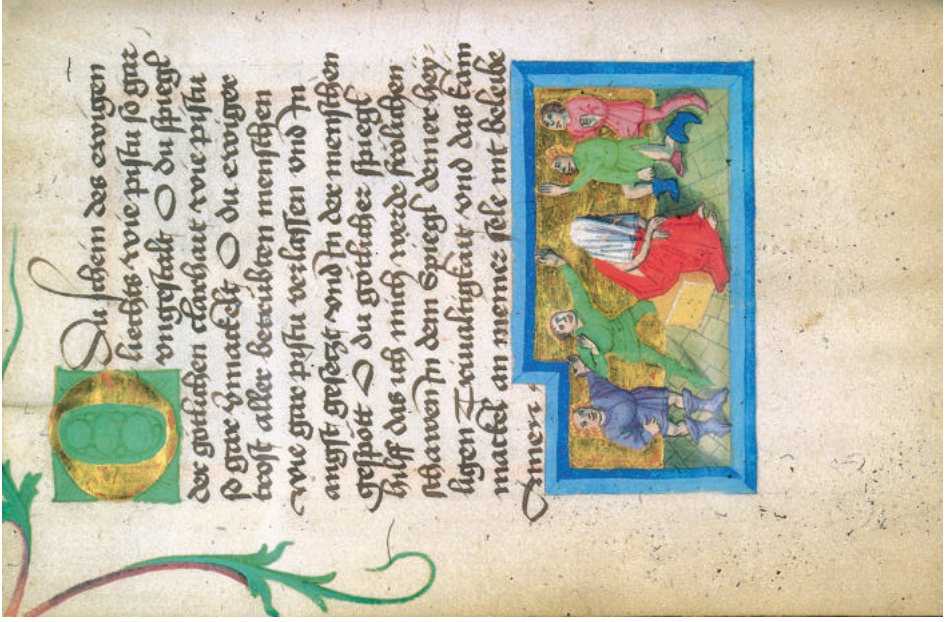 O du schein des ewigen
liechts wie pistu so gar
vngestalt O du spiegl
der gotlichen clarhait wie pistu
so gar vermackelt O du ewiger
trost aller betrubten menschen
wie gar pistu verlassen vnd in
angst gesetzt vnd in der menschen
gespott O du gotlicher spiegl
hilff das ich mich werde frolichen
schawen in dem Spiegl deiner hey
ligen Triualtigkait vnd das kain
mackel an meiner sele nit beleibe
Amen